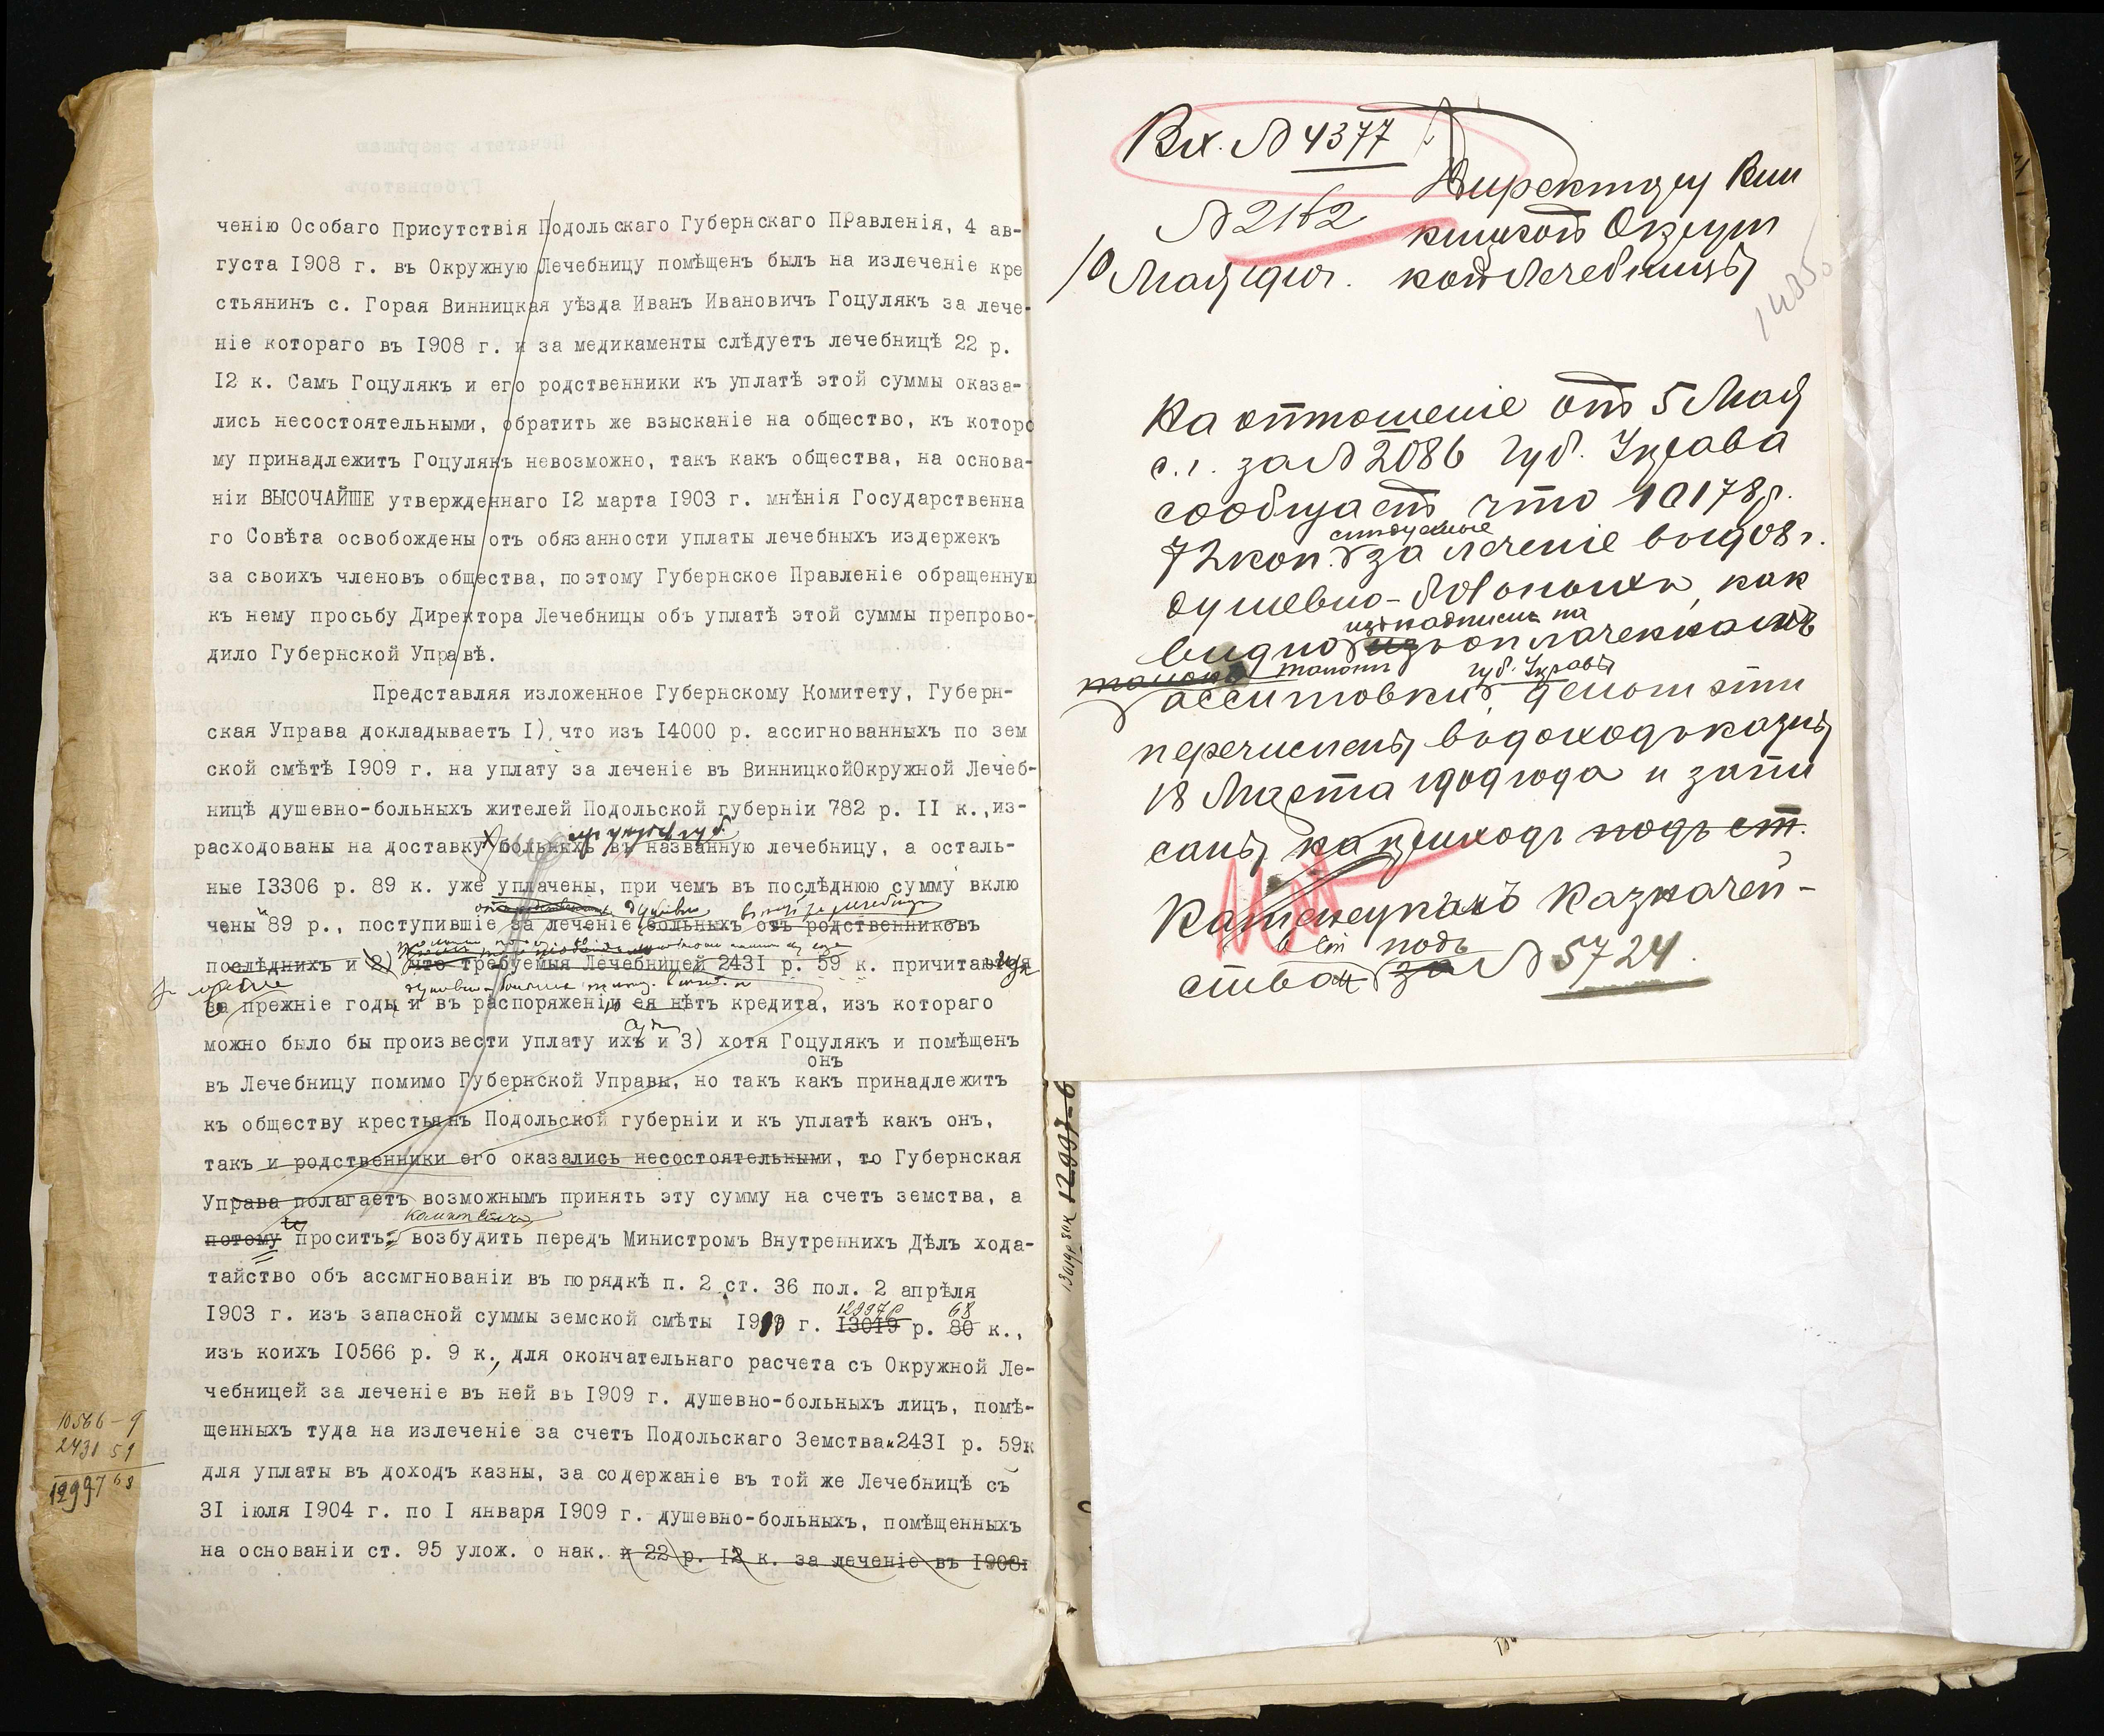 ченію Особаго Присутствія Подольскаго Губернскаго Правленія, 4 ав-
густа 1908 г. въ Окружную Лечебницу помѣщенъ былъ на излеченіе кре
стьянинъ с. Горая Винницкая уѣзда Иванъ Ивановичъ Гоцулякъ за лече-
ніе котораго въ 1908 г. и за медикаменты слѣдуетъ лечебницѣ 22 р.
12 к. Самъ Гоцулякъ и его родственники къ уплатѣ этой суммы оказа-
лись несостоятельными, обратить же взысканіе на общество, къ которо
му принадлежитъ Гоцулякъ невозможно, такъ какъ общества, на основа-
ніи ВЫСОЧАЙШЕ утвержденнаго 12 марта 1903 г. мнѣнія Государственна
го Совѣта освобождены отъ обязанности уплаты лечебныхъ издержекъ
за своихъ членовъ общества, поэтому Губернское Правленіе обращенную
къ нему просьбу Директора Лечебницы объ уплатѣ этой суммы препрово-
дило Губернской Управѣ.
Представляя изложенное Губернскому Комитету, Губерн-
ская Управа докладываетъ 1) что изъ 14000 р. ассигнованныхъ по зем
ской смѣтѣ 1909 г. на уплату за леченіе въ ВинницкойОкружной Лечеб-
ницѣ душевно-больныхъ жителей Подольской губерніи 782 р. 11 к.,из-
расходованы на доставку больныхъ въ названную лечебницу, а осталь-
ные 13306 р. 89 к. уже уплачены, при чемъ въ послѣднюю сумму вклю
чены 89 р., поступившіе за леченіе больныхъ отъ родственниковъ
послѣднихъ и 2) что требуемыя Лечебницей 2431 р. 59 к. причитаются
за прежніе годы и въ распоряженіи ея нѣтъ кредита, изъ котораго
можно было бы произвести уплату ихъ и 3) хотя Гоцулякъ и помѣщенъ
онъ
въ Лечебницу помимо Губернской Управы, но такъ какъ принадлежитъ
къ обществу крестьянъ Подольской губерніи и къ уплатѣ какъ онъ,
такъ и родственники его оказались несостоятельными, то Губернская
Управа полагаетъ возможнымъ принять эту сумму на счетъ земства, а
потому проситъ возбудить передъ Министромъ Внутреннихъ Дѣлъ хода-
тайство объ ассмгнованіи въ порядкѣ п. 2 ст. 36 пол. 2 апрѣля
12997р 68
1903 г. изъ запасной суммы земской смѣты 1910 г. 13019 р. 80 к.,
изъ коихъ 10566 р. 9 к., для окончательнаго расчета съ Окружной Ле-
чебницей за леченіе въ ней въ 1909 г. душевно-больныхъ лицъ, помѣ-
щенныхъ туда на излеченіе за счетъ Подольскаго Земства и 2431 р. 59к
для уплаты въ доходъ казны, за содержаніе въ той же Лечебницѣ съ
31 іюля 1904 г. по 1 января 1909 г. душевно-больныхъ, помѣщенныхъ
на основаніи ст. 95 улож. о нак. и 22 р. 12 к. за леченіе въ 1908г
10566-9
2431 59
12997 68
Вх. № 4377
Директору Вин
№ 2162
ницкой Окруж
10 Мая 1910г.
ной Лечебницы
На отношеніе отъ 5 Мая
с.г. за № 2086 Губ. Управа
сообщаетъ что 10178р.
следуемые
72 коп. за леченіе въ 1908г.
душевно-больныхъ, как
изъ надписи на
видно изъ оплаченномъ
талонъ талонѣ Губ. Управы
ассигновки, деньги эти
перечислены въ доходъ казны
18 Марта 1909 года и запи
саны на приходъ подъ ст.
Каменецкимъ Казначей-
въ ст подъ
ствомъ за № 5724.